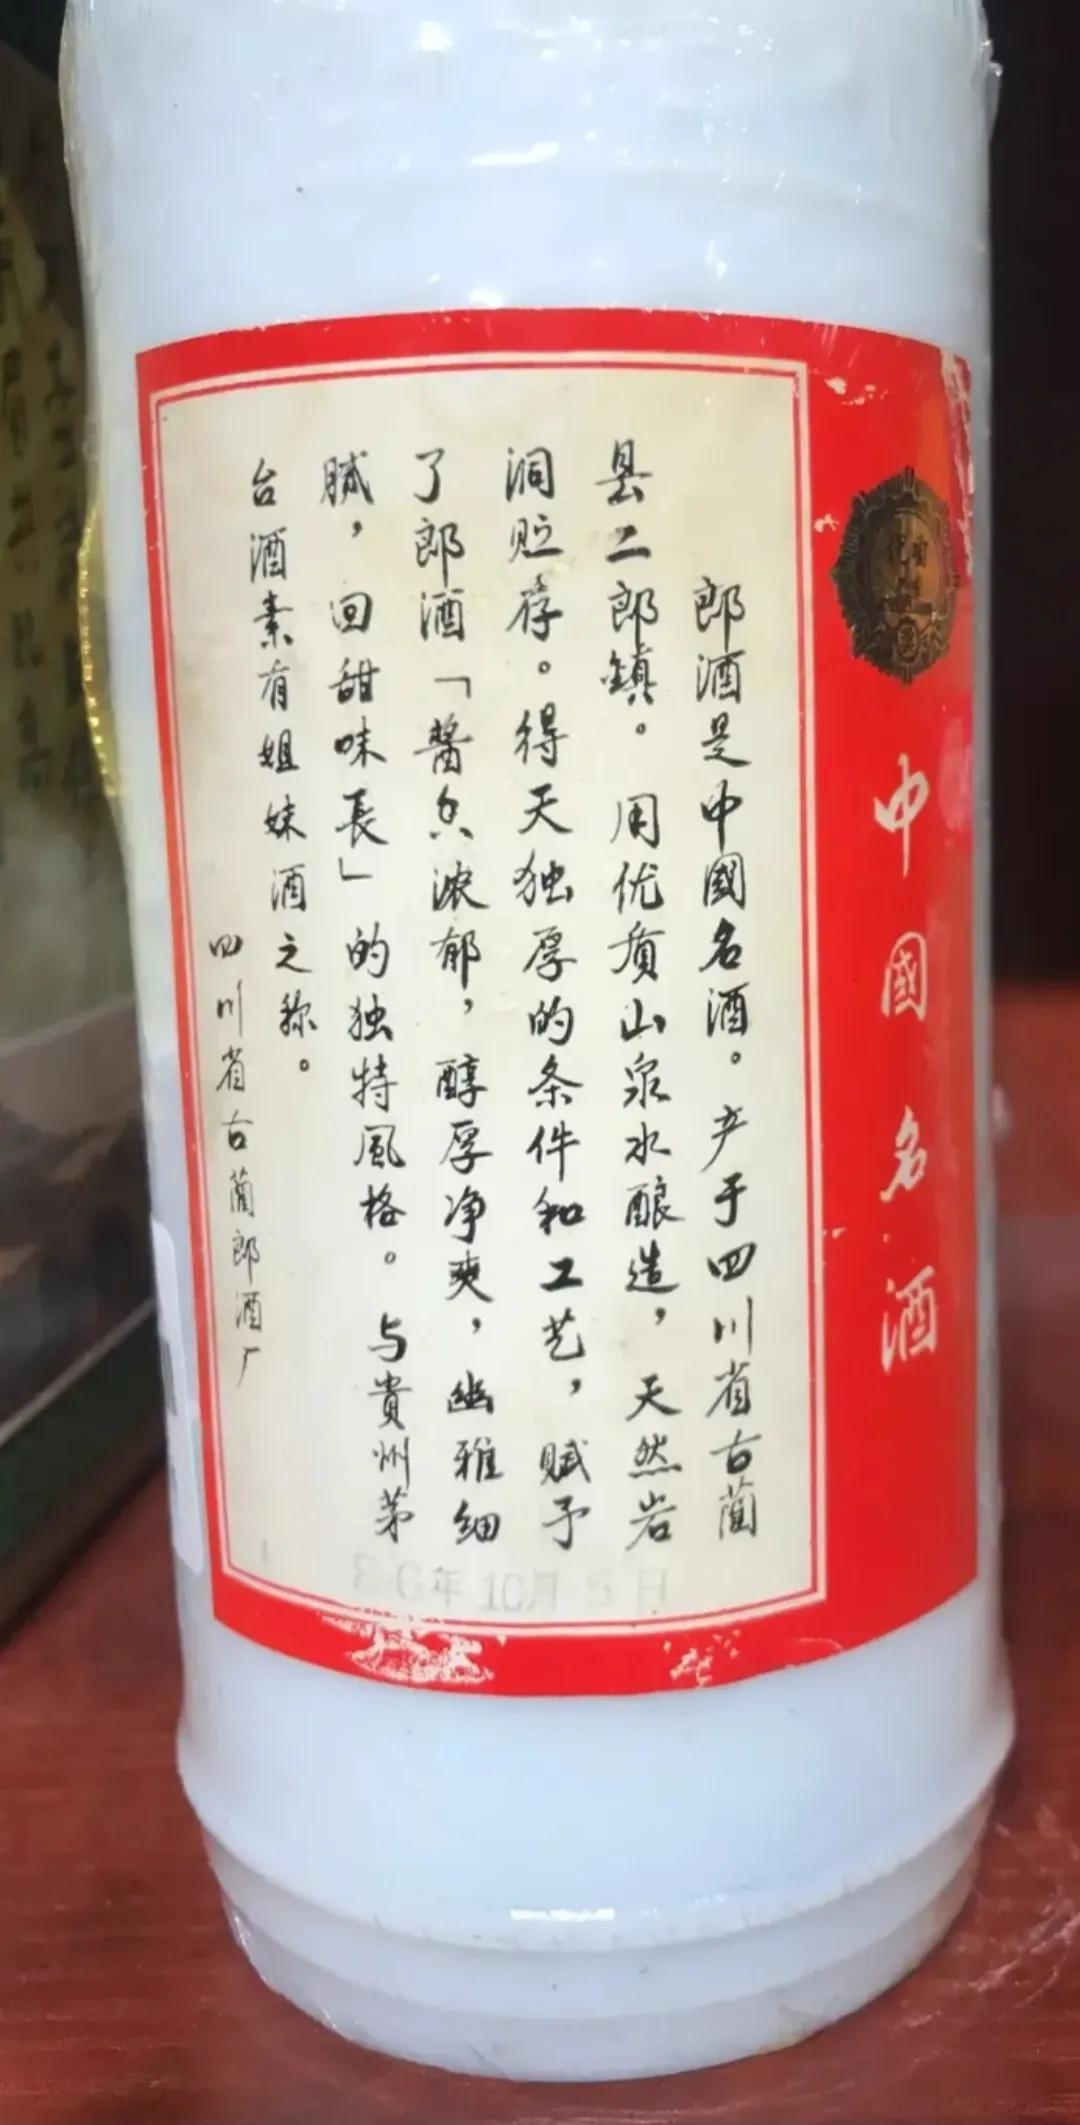 郎酒是中國名酒。产于四川省古蔺
县二郎镇。用优质山泉水酿造，天然岩
洞贮存。得天独厚的条件和工艺，赋予
了郎酒「醬香浓郁，醇厚净爽，幽雅细
腻，回甜味長」的独特風格。与貴州茅
台酒素有姐妹酒之称。
四川省古蔺郎酒厂
86年10月5日
中國名酒